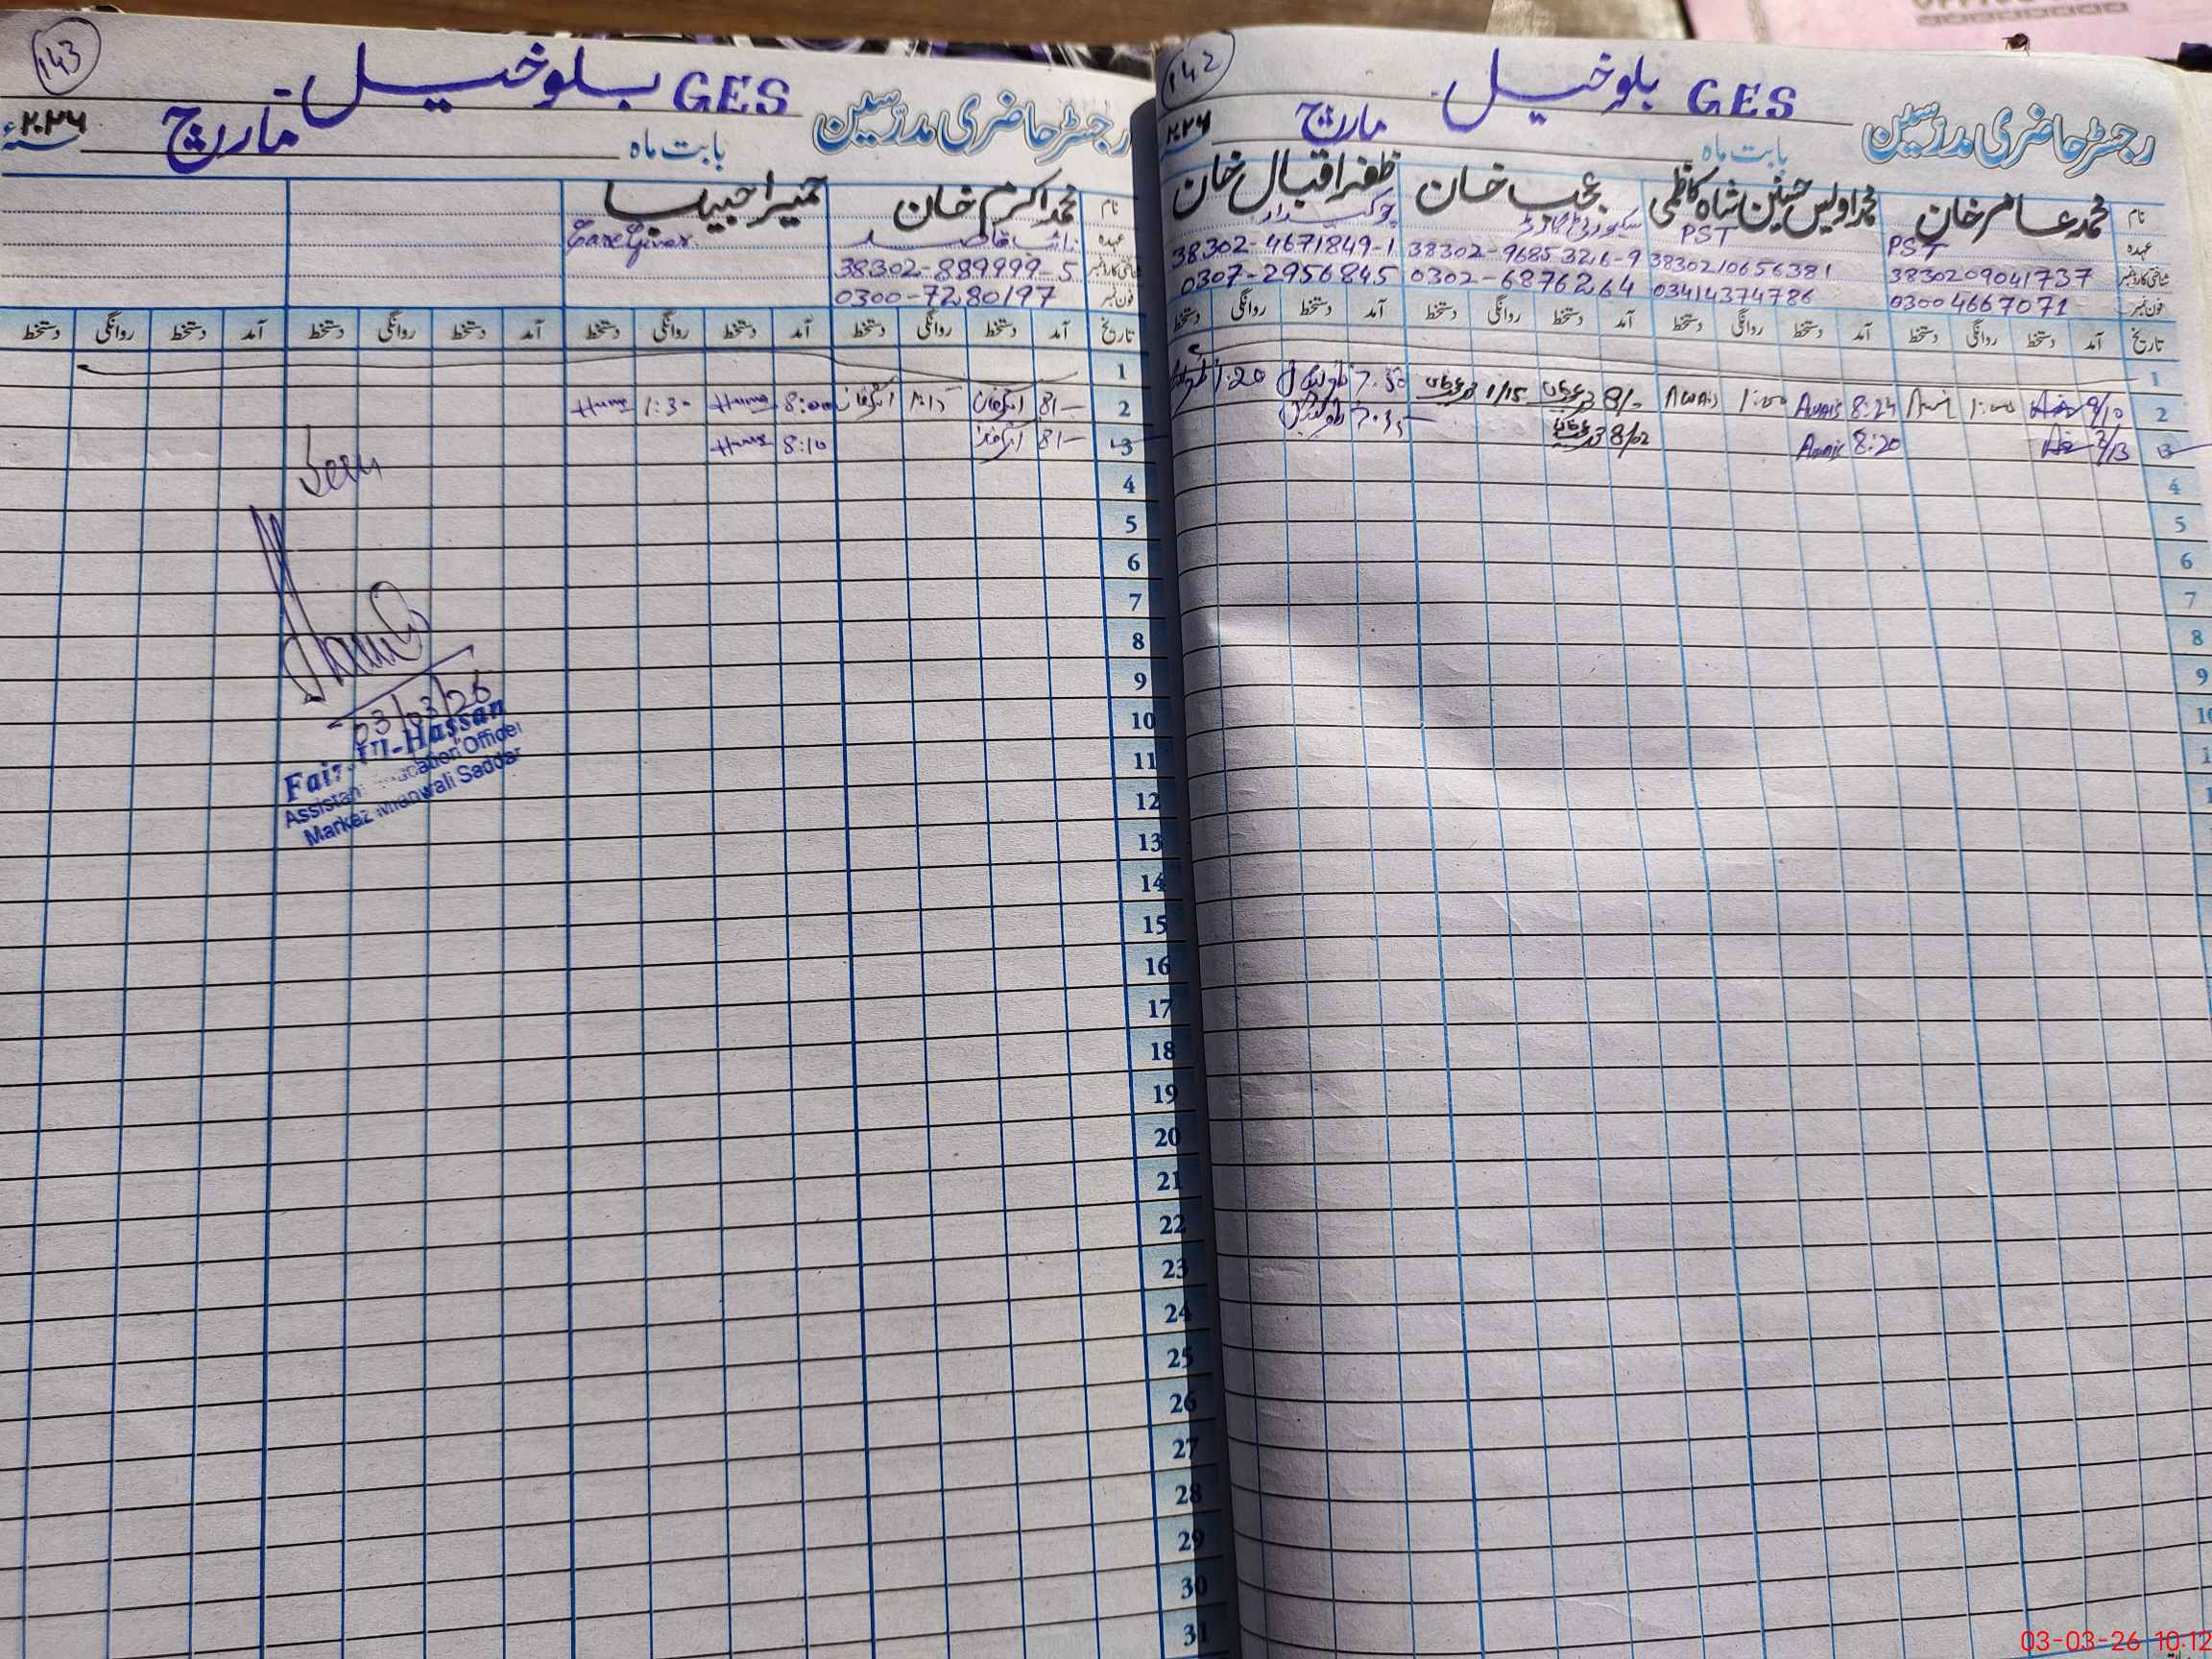 143
GES بلوخیل
رجسٹر حاضری مدرسین
بابت ماہ مارچ ۲۰۲۶ء
نام محمد اکرم خان حمیرا جبیں
عہدہ نائب قاصد Care Giver
شناختی کارڈ نمبر 38302-889999-5
فون نمبر 0300-7280197
تاریخ آمد دستخط روانگی دستخط آمد دستخط روانگی دستخط آمد دستخط روانگی دستخط آمد دستخط روانگی دستخط
1
2 8:00 1:30
3 8:10
4
5
6
7
8
9
10
11
12
13
14
15
16
17
18
19
20
21
22
23
24
25
26
27
28
29
30
31
Seen
03/03/26
-ul-Hassan
Assistant Education Officer
Markaz Mianwali Saddar
142
GES بلوخیل
رجسٹر حاضری مدرسین
بابت ماہ مارچ ۲۰۲۶
نام محمد عامر خان محمد اویس حسنین شاہ کاظمی عجب خان ظفر اقبال خان
عہدہ PST PST سیکورٹی گارڈ چوکیدار
شناختی کارڈ نمبر 3830209041737 3830210656381 38302-9685326-9 38302-4671849-1
فون نمبر 03004667071 03414374786 0302-6876264 0307-2956845
تاریخ آمد دستخط روانگی دستخط آمد دستخط روانگی دستخط آمد دستخط روانگی دستخط آمد دستخط روانگی دستخط
1
2 1:00 8:24 Awais 1:00 Awais 8/- 1/15 7.30 1:20
3 8:20 Awais 8/02 7.35
4
5
6
7
8
9
03-03-26 10:12